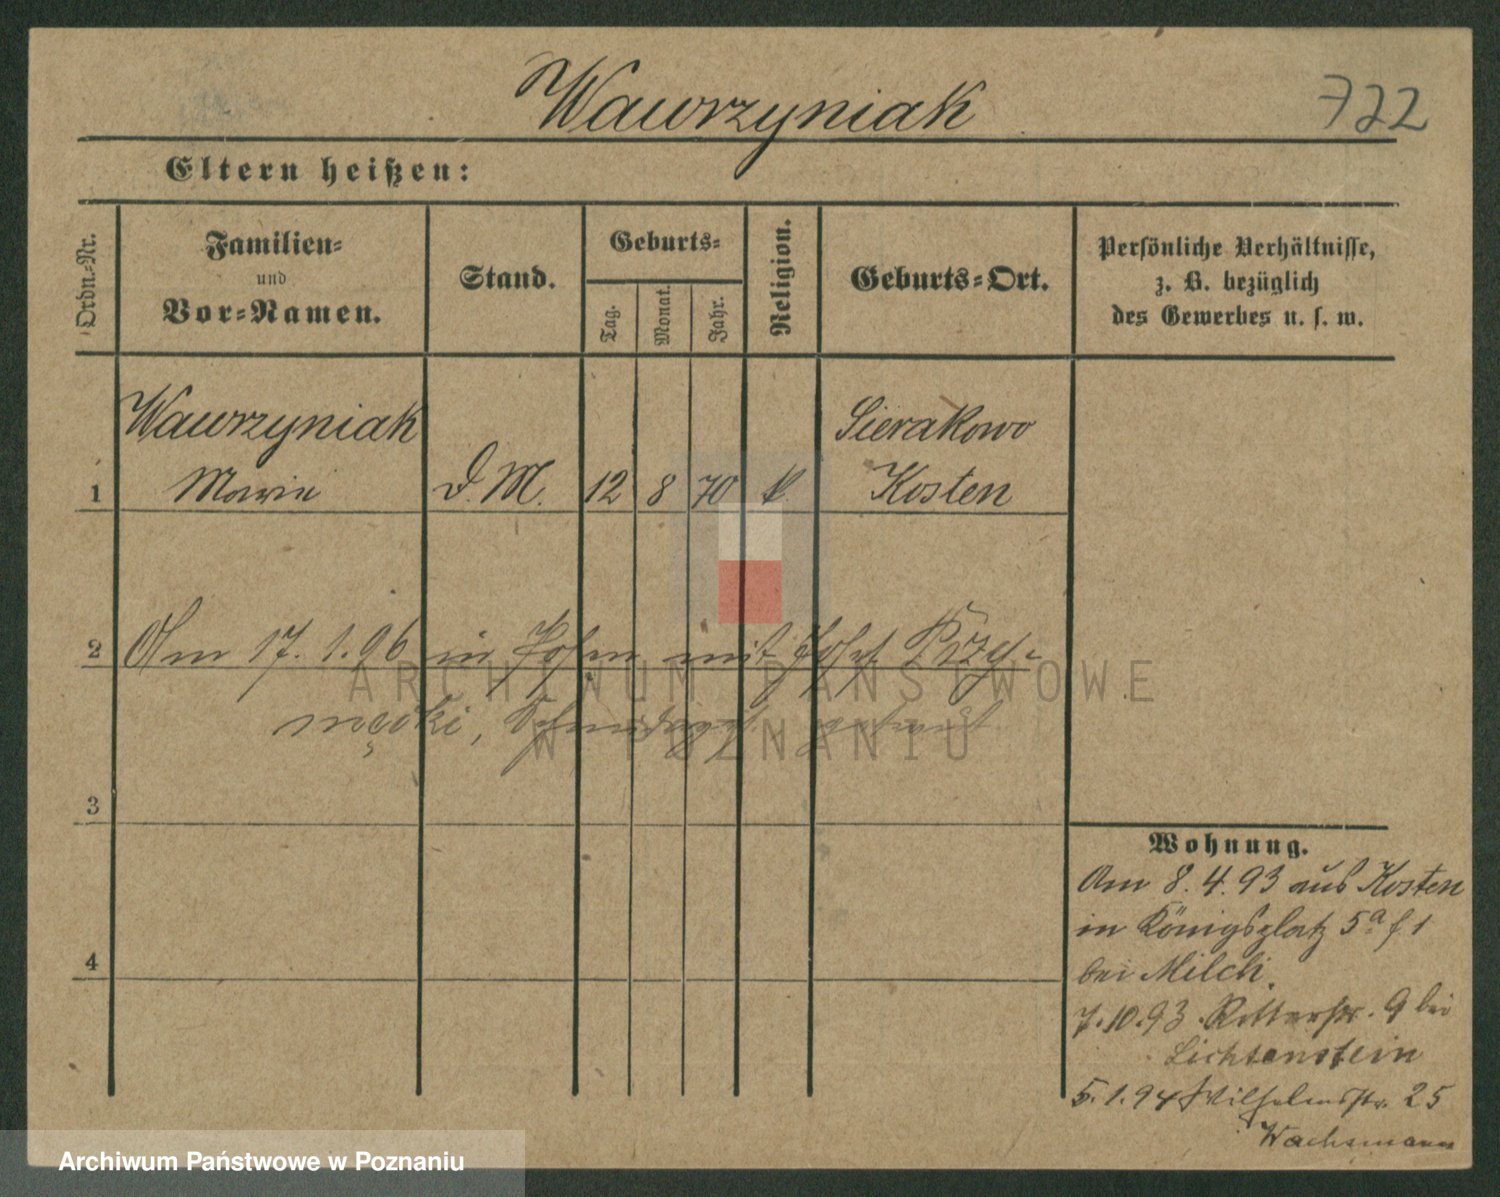 Wawrzyniak
722
Eltern heißen:
Ordn.=Nr.
Familien=
und
Vor=Namen.
Stand.
Geburts=
Tag.
Monat.
Jahr.
Religion.
Geburts=Ort.
Persönliche Verhältnisse,
z. B. bezüglich
des Gewerbes u. s. w.
Wawrzyniak Sierakowo
1 Marie D. M. 12 8 70 k. Kosten
2 Am 17. 1. 96 in Posen mit Josef Krzy-
3
4
Wohnung.
Am 8. 4. 93 aus Kosten
in Königsplatz 5a f 1
bei Milch.
7. 10. 93. Ritterstr. 9 bei
Lichtenstein
5. 1. 94 Wilhelmstr. 25
Wachsmann
ARCHIWUM PAŃSTWOWE
W POZNANIU
Archiwum Państwowe w Poznaniu